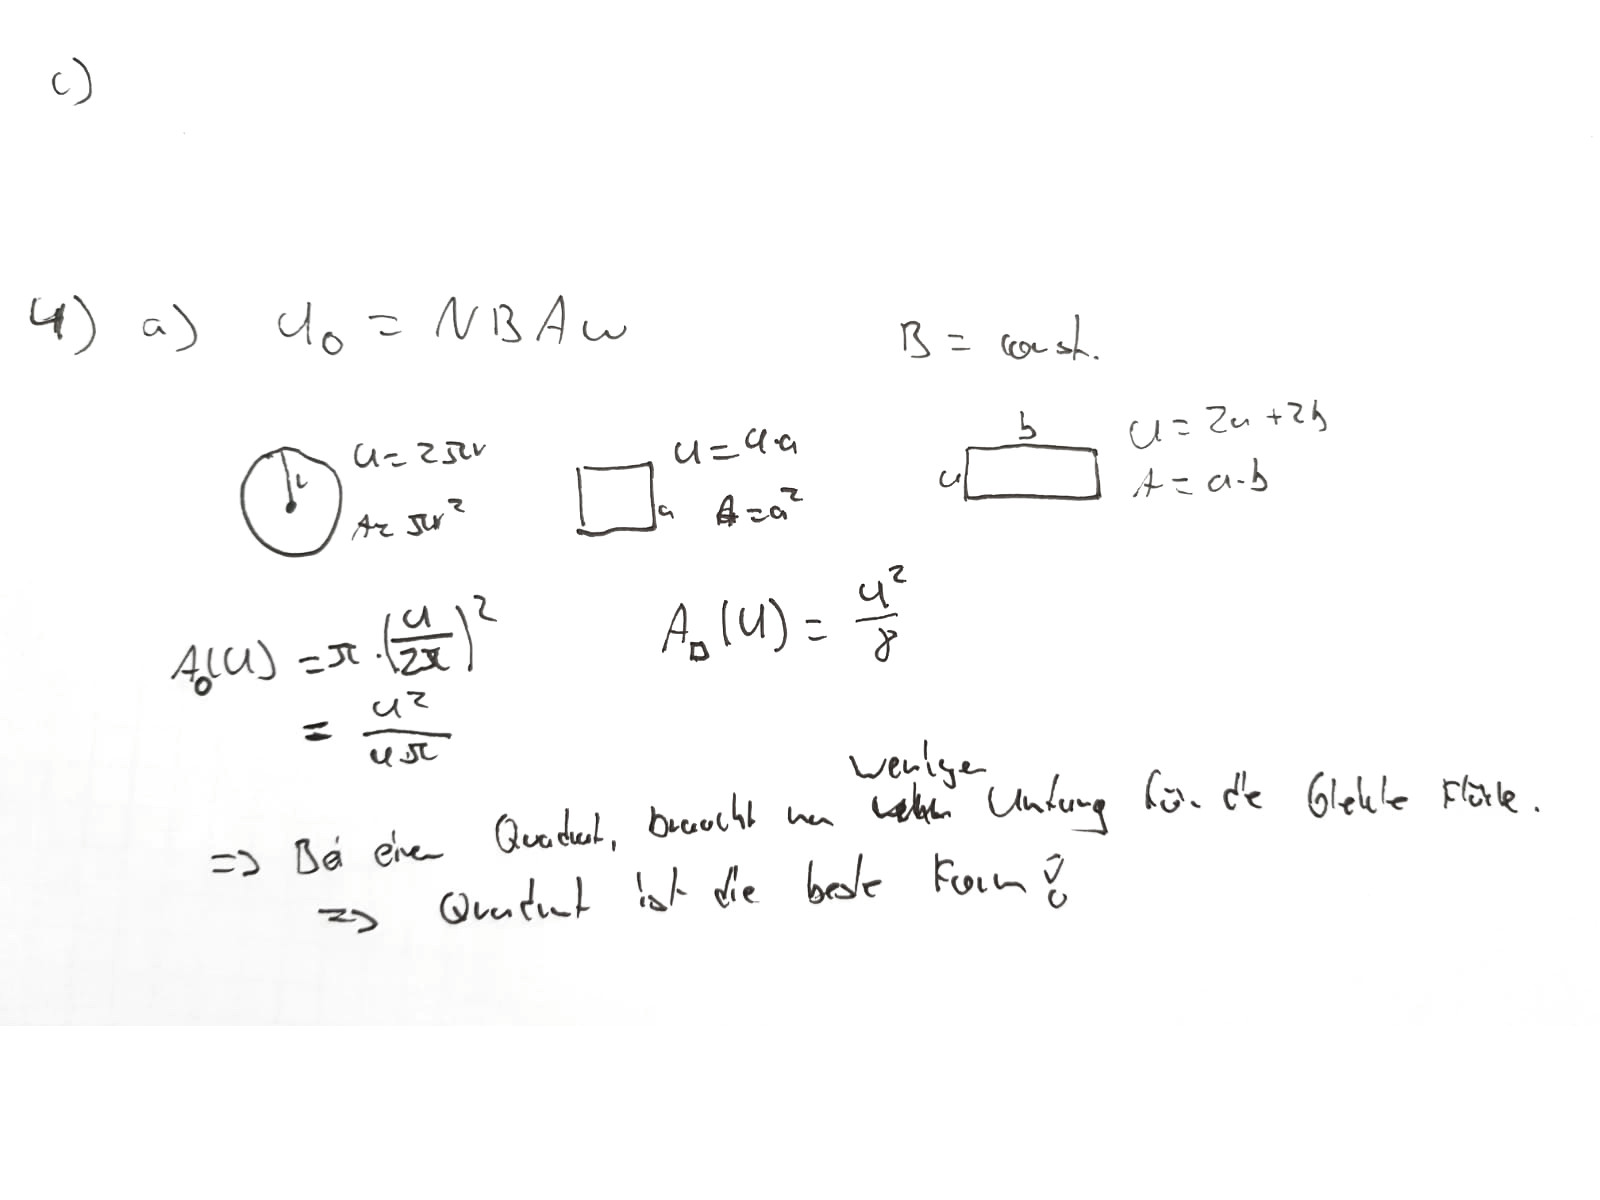 c)
4) a) U₀ = NBAω
B = const.
r
U = 2πr
A = πr²
a
U = 4·a
A = a²
b
a
U = 2a + 2b
A = a·b
A○(U) = π·(U/2π)²
= U²/4π
A□(U) = U²/8
weniger
=> Bei einem Quadrat, braucht man Umfang für die Gleiche Fläche.
=> Quadrat ist die beste Form?